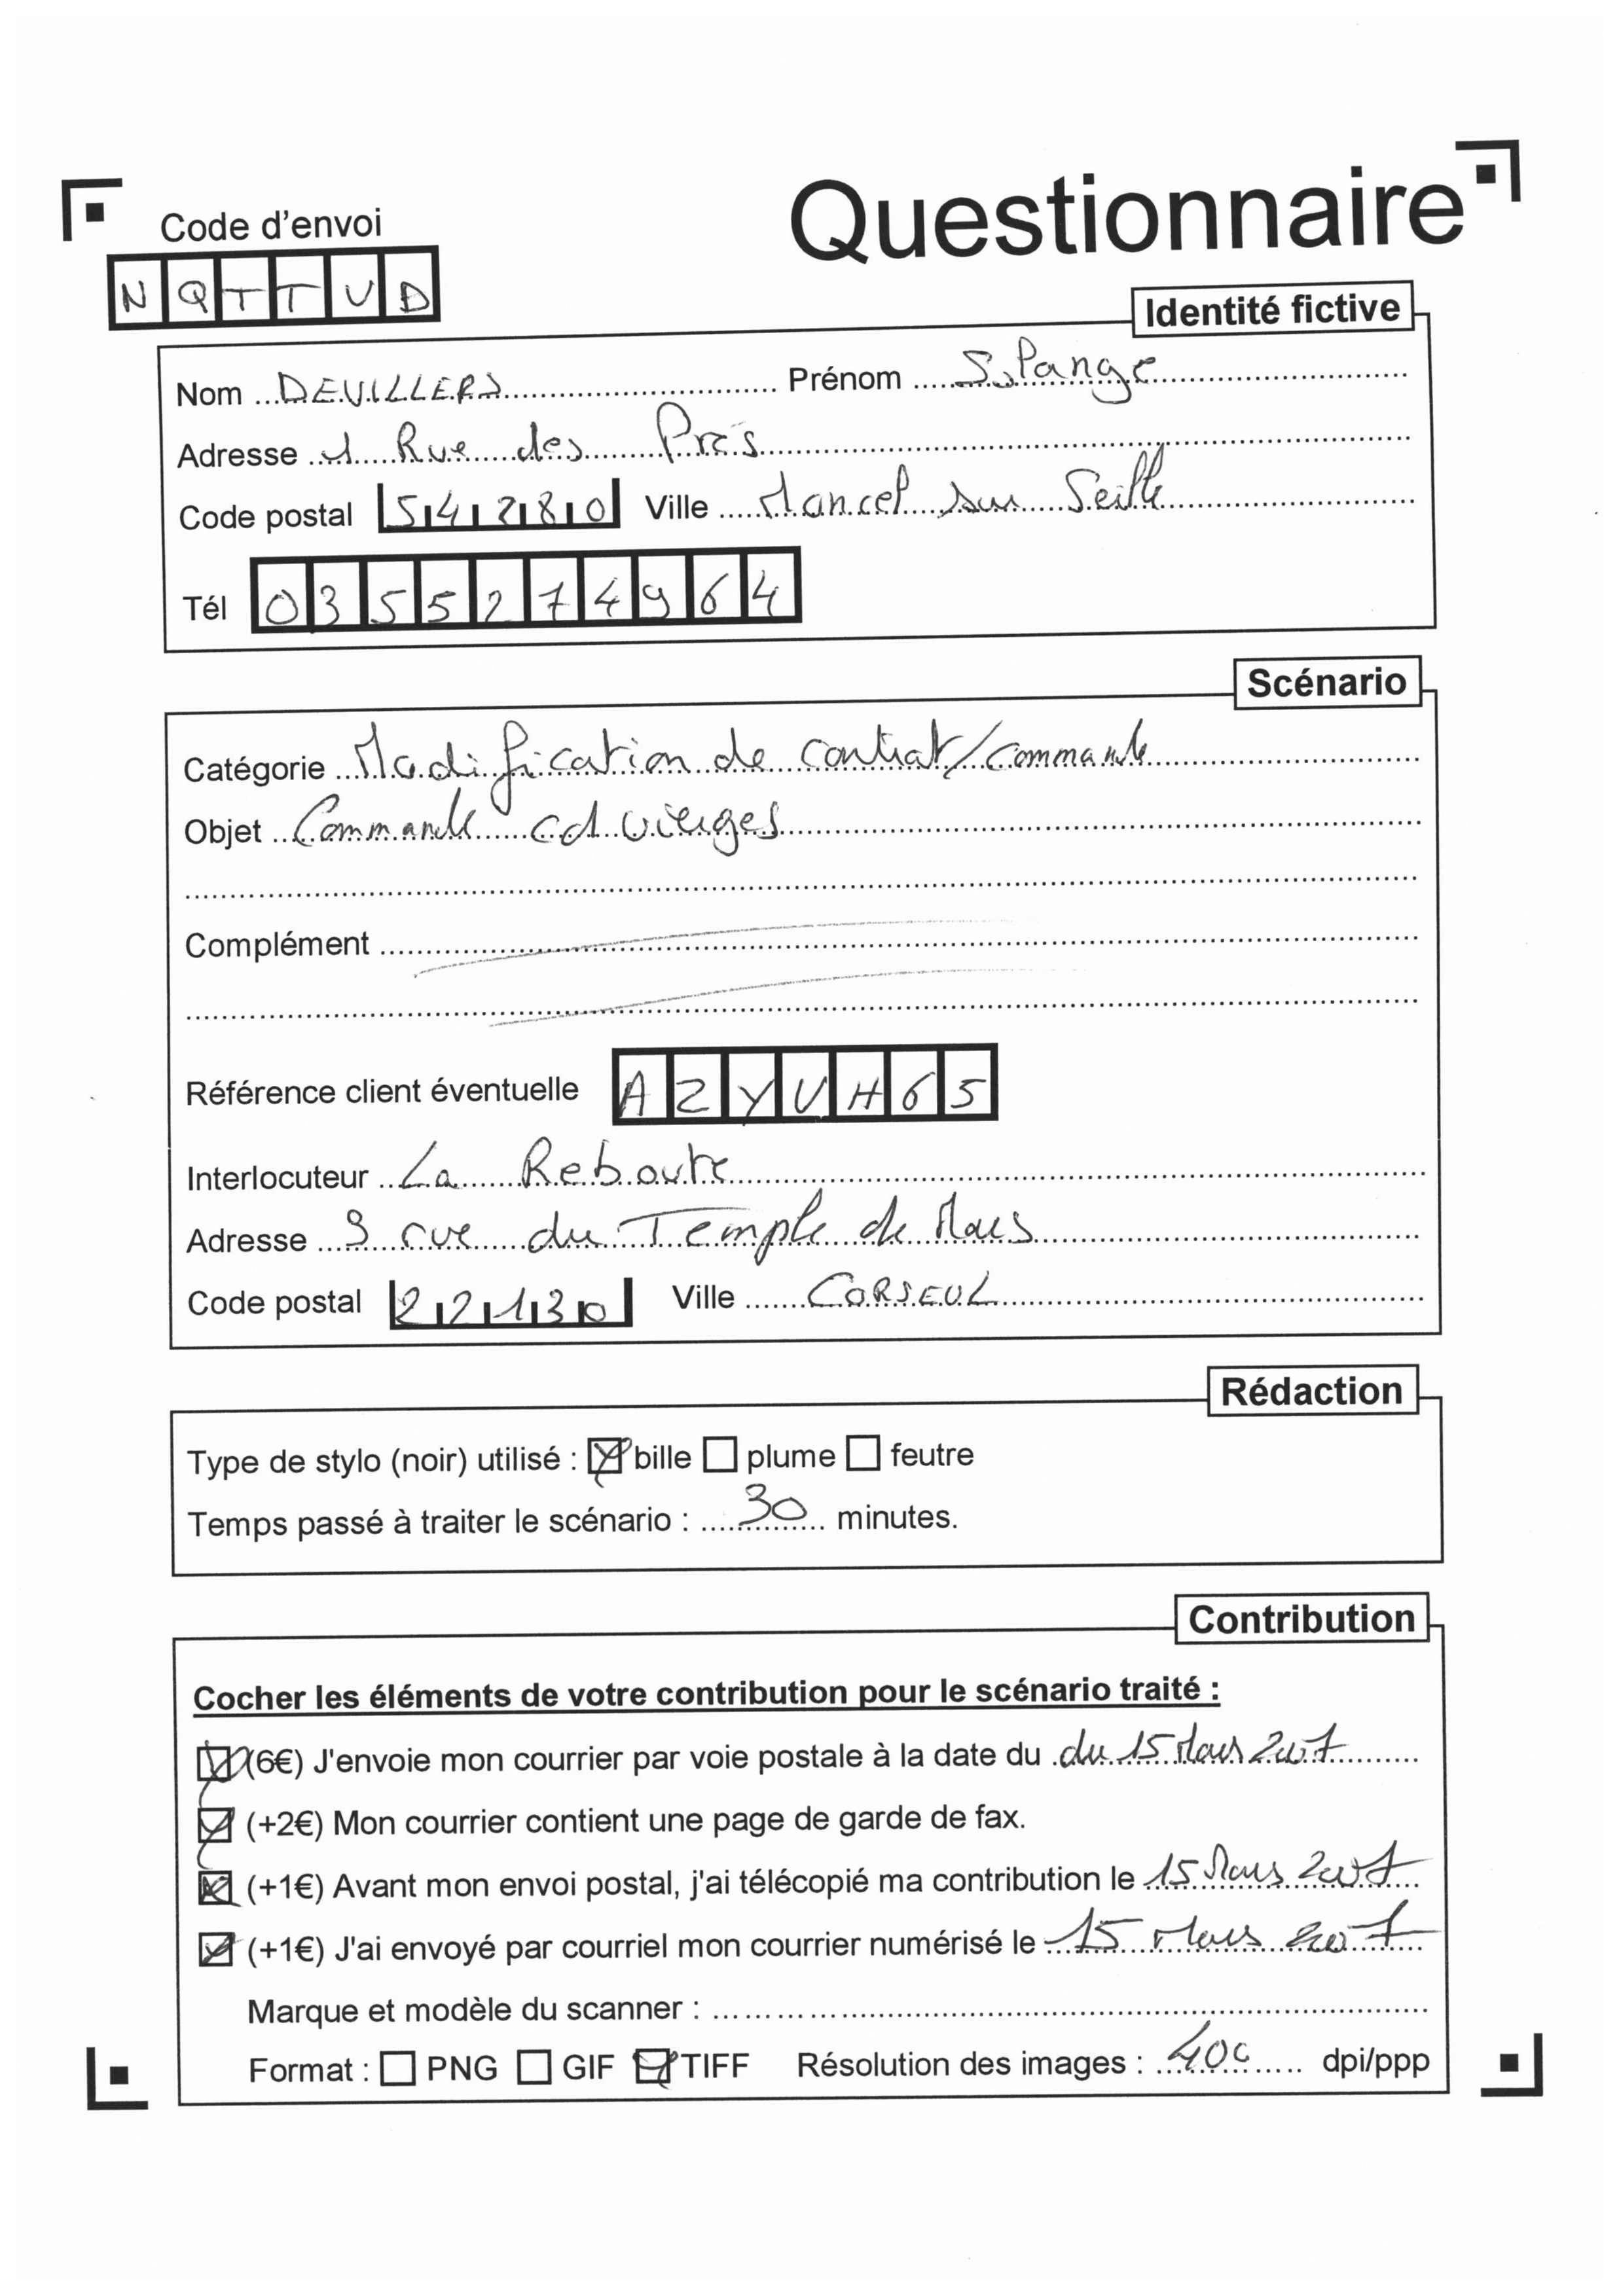 Questionnaire
Code d'envoi
NQTTUD
Identité fictive
Nom DEVILLERS Prénom
Adresse 1 Rue des Prés
Code postal 54280 Ville Moncel sur Seille
Tél 0355274964
Scénario
Catégorie Modification de contrat/commande
Objet Commande cd vierges
Complément
Référence client éventuelle AZYUH65
Interlocuteur La Reboute
Adresse 9 rue du Temple de Mars
Code postal 22130 Ville CORSEUL
Rédaction
Type de stylo (noir) utilisé : bille plume feutre
Temps passé à traiter le scénario : 30 minutes.
Contribution
Cocher les éléments de votre contribution pour le scénario traité :
(6€) J'envoie mon courrier par voie postale à la date du du 15 Mars 2007
(+2€) Mon courrier contient une page de garde de fax.
(+1€) Avant mon envoi postal, j'ai télécopié ma contribution le 15 Mars 2007
(+1€) J'ai envoyé par courriel mon courrier numérisé le 15 Mars 2007
Marque et modèle du scanner :
Format : PNG GIF TIFF Résolution des images : 400 dpi/ppp